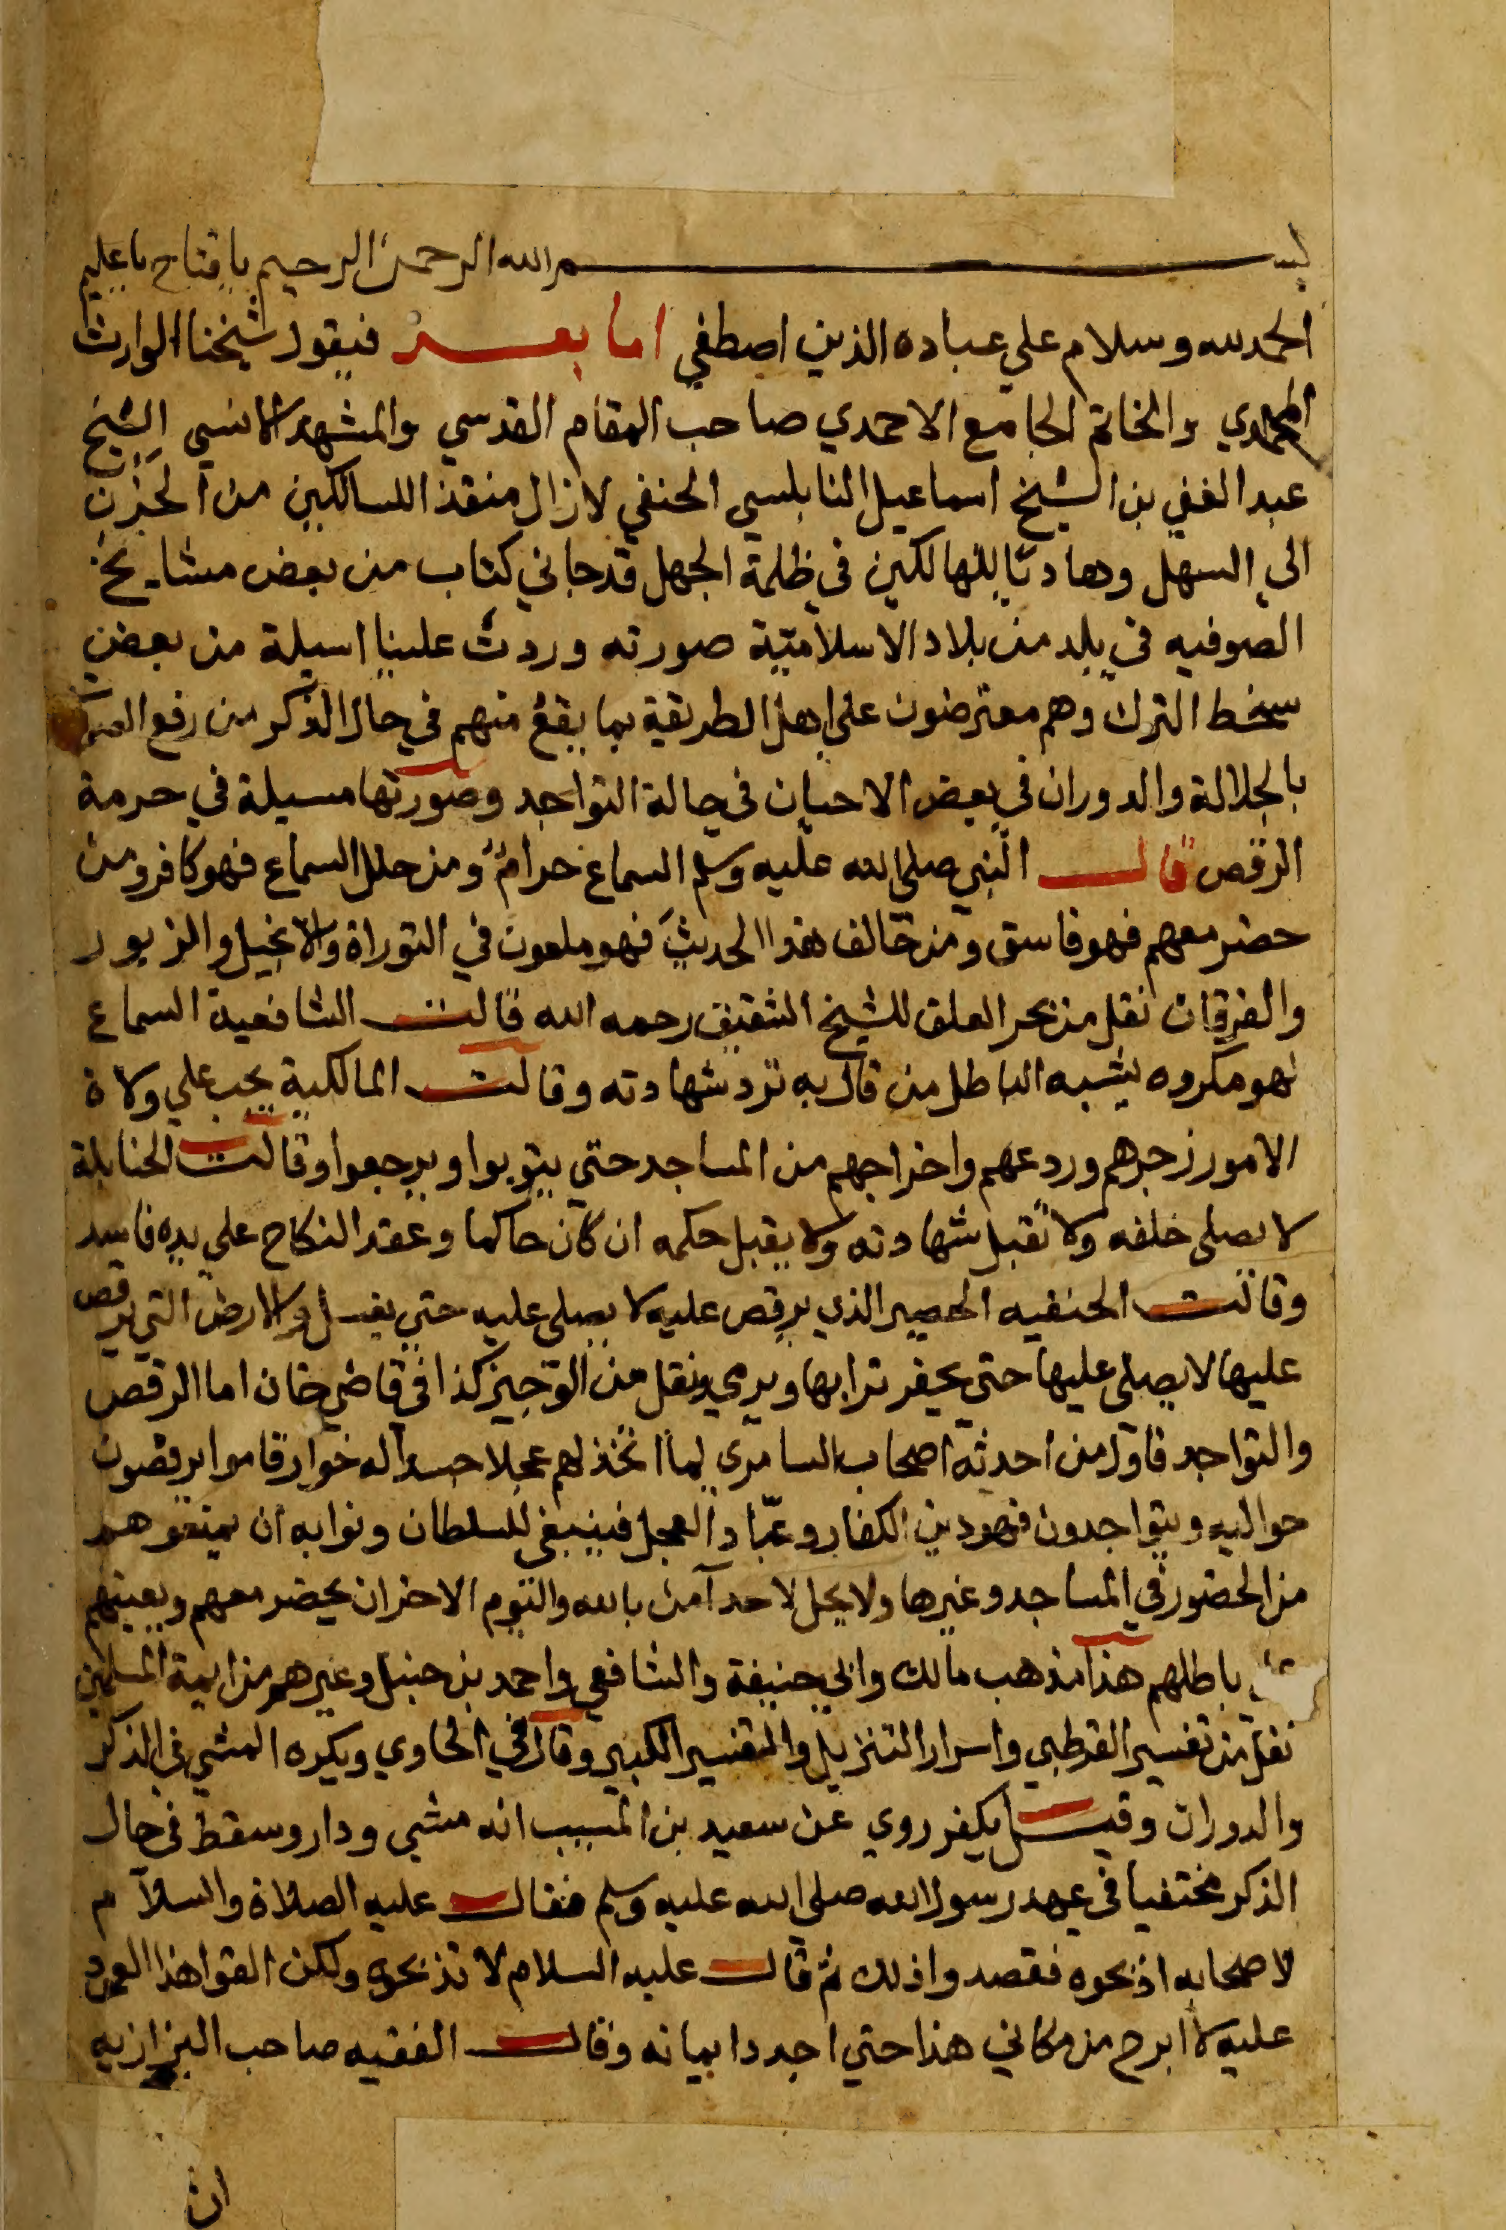 بسم الله الرحمن الرحيم يا فتاح يا عليم
الحمد لله وسلام علي عباده الذين اصطفي اما بعد فيقول شيخنا الوارث
المحمدي والخاتم الجامع الاحمدي صاحب المقام القدسي والمشهد الانسي الشيخ
عبد الغني بن الشيخ اسماعيل النابلسي الحنفي لا زال منقذا للسالكين من الحزن
الي السهل وهاديًا للهالكين في ظلمة الجهل قد جاني كتاب من بعض مشايخ
الصوفيه في بلد من بلاد الاسلاميّة صورته وردت علينا اسيلة من بعض
سخط الترك وهم معترضون علي اهل الطريقة بما يقع منهم في حال الذكر من رفع الصوت
بالجلالة والدوران في بعض الاحيان في حالة التواجد وصورتها مسيلة في حرمة
الرقص قال النبي صلى الله عليه وسلم السماع حرام ومن حلل السماع فهو كافر ومن
حضر معهم فهو فاسق ومن خالف هذا الحديث فهو ملعون في التوراة والانجيل والزبور
والفرقان نقل من بحر العلق للشيخ الشقيق رحمه الله قالت الشافعية السماع
لهو مكروه يشبه الباطل من قال به ترد شهادته وقالت المالكية يجب علي ولاة
الامور زجرهم وردعهم واخراجهم من المساجد حتي يتوبوا ويرجعوا وقالت الحنابلة
لا يصلى خلفه ولا تقبل شهادته ولا يقبل حكمه ان كان حاكما وعقد النكاح علي يده فاسد
وقالت الحنفيه الحصير الذي يرقص عليه لا يصلى عليه حتي يغسل والارض التي يرقص
عليها لا يصلى عليها حتى يحفر ترابها ويرمي ونقل من الوجيز كذا في قاضي خان اما الرقص
والتواجد فاول من احدثه اصحاب السامري لما اتخذ لهم عجلا جسدا له خوار قاموا يرقصون
حواليه ويتواجدون فهو دين الكفار وعبّاد العجل فينبغي للسلطان ونوابه ان يمنعوهم
من الحضور في المساجد وغيرها ولا يحل لاحد آمن بالله واليوم الاخر ان يحضر معهم ويعينهم
باطلهم هذا مذهب مالك وابي حنيفة والشافعي واحمد بن حنبل وغيرهم من ايمة المسلمين
نقل من تفسير القرطبي واسرار التنزيل والتفسير الكبير وقال في الحاوي ويكره المشي في الذكر
والدوران وقيل يكفر روي عن سعيد بن المسيب انه مشي ودار وسقط في حال
الذكر مختفيا في عهد رسول الله صلى الله عليه وسلم فقال عليه الصلاة والسلام
لاصحابه اذبحوه فقصدوا ذلك ثم قال عليه السلام لا تذبحوه ولكن القوا هذا العمود
عليه لا ابرح من مكاني هذا حتي اجدد ايمانه وقال الفقيه صاحب البزازيه
ان